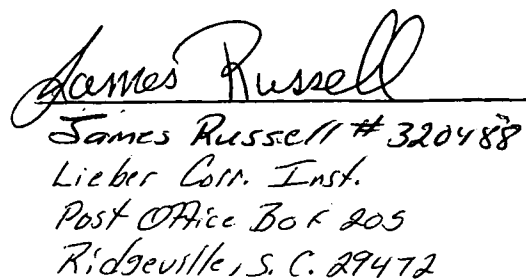 James Russell
James Russell # 320488
Lieber Corr. Inst.
Post Office Box 205
Ridgeville, S.C. 29472